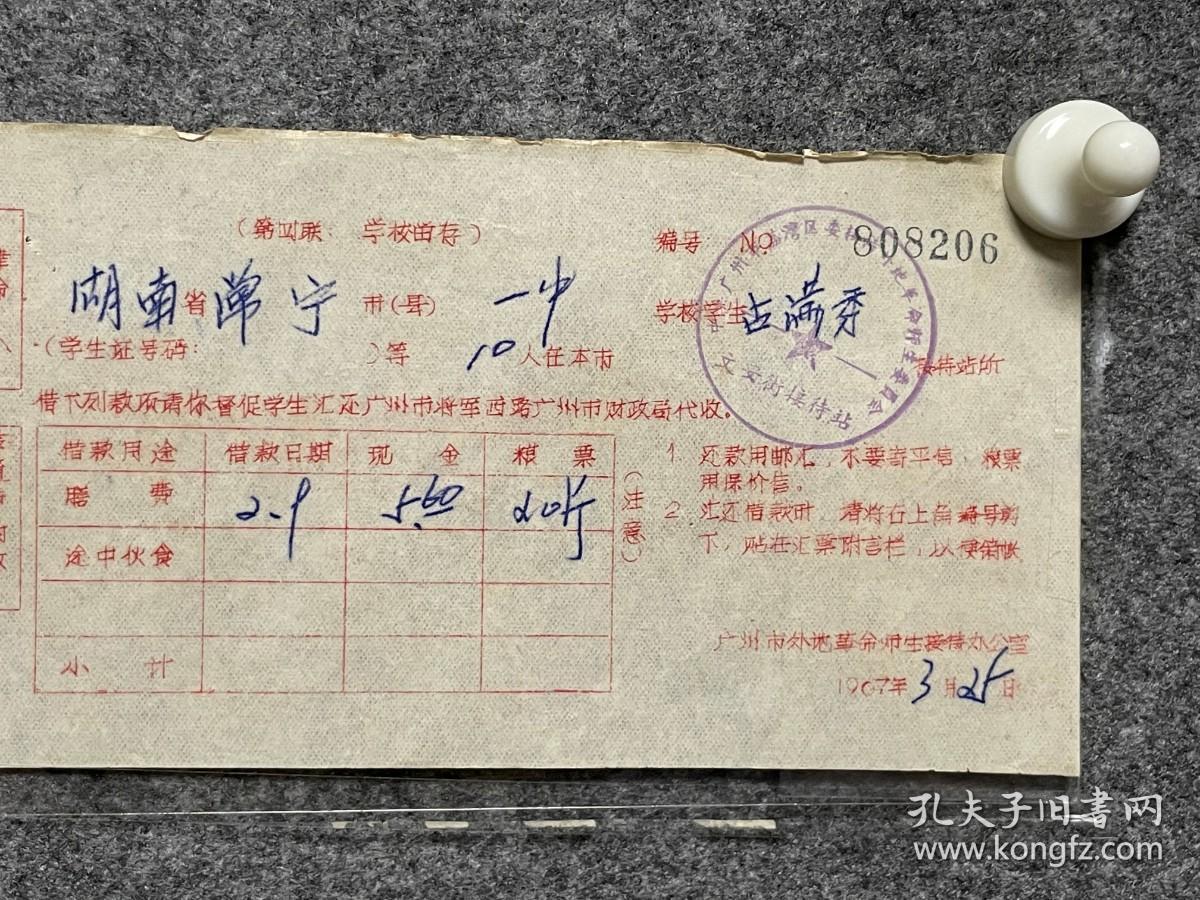 (第四联：学校留存)
编号 No. 808206
湖南省常宁市(县)一中学校学生占满秀
(学生证号码： )等10人在本市 接待站所
借下列款项请你督促学生汇还广州市将军西路广州市财政局代收。
借款用途 借款日期 现金 粮票
膳费 2.9 5.60 20斤
途中伙食
小计
(注意)
1. 还款用邮汇，不要寄平信，粮票
用保价信。
2. 汇还借款时，请将右上角编号剪
下，贴在汇票附言栏，以便销帐
广州市外地革命师生接待办公室
1967年3月25日
文安街接待站
孔夫子旧书网
www.kongfz.com